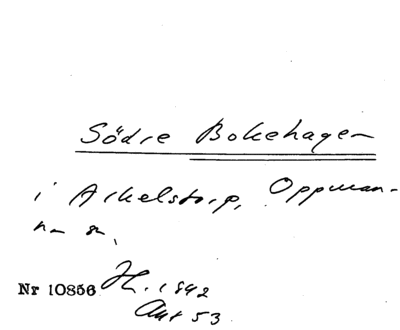 Södre Bokehagen
i Arkelstorp, Oppman-
na sn.
Nr 10856 H. 1842
Akt 53